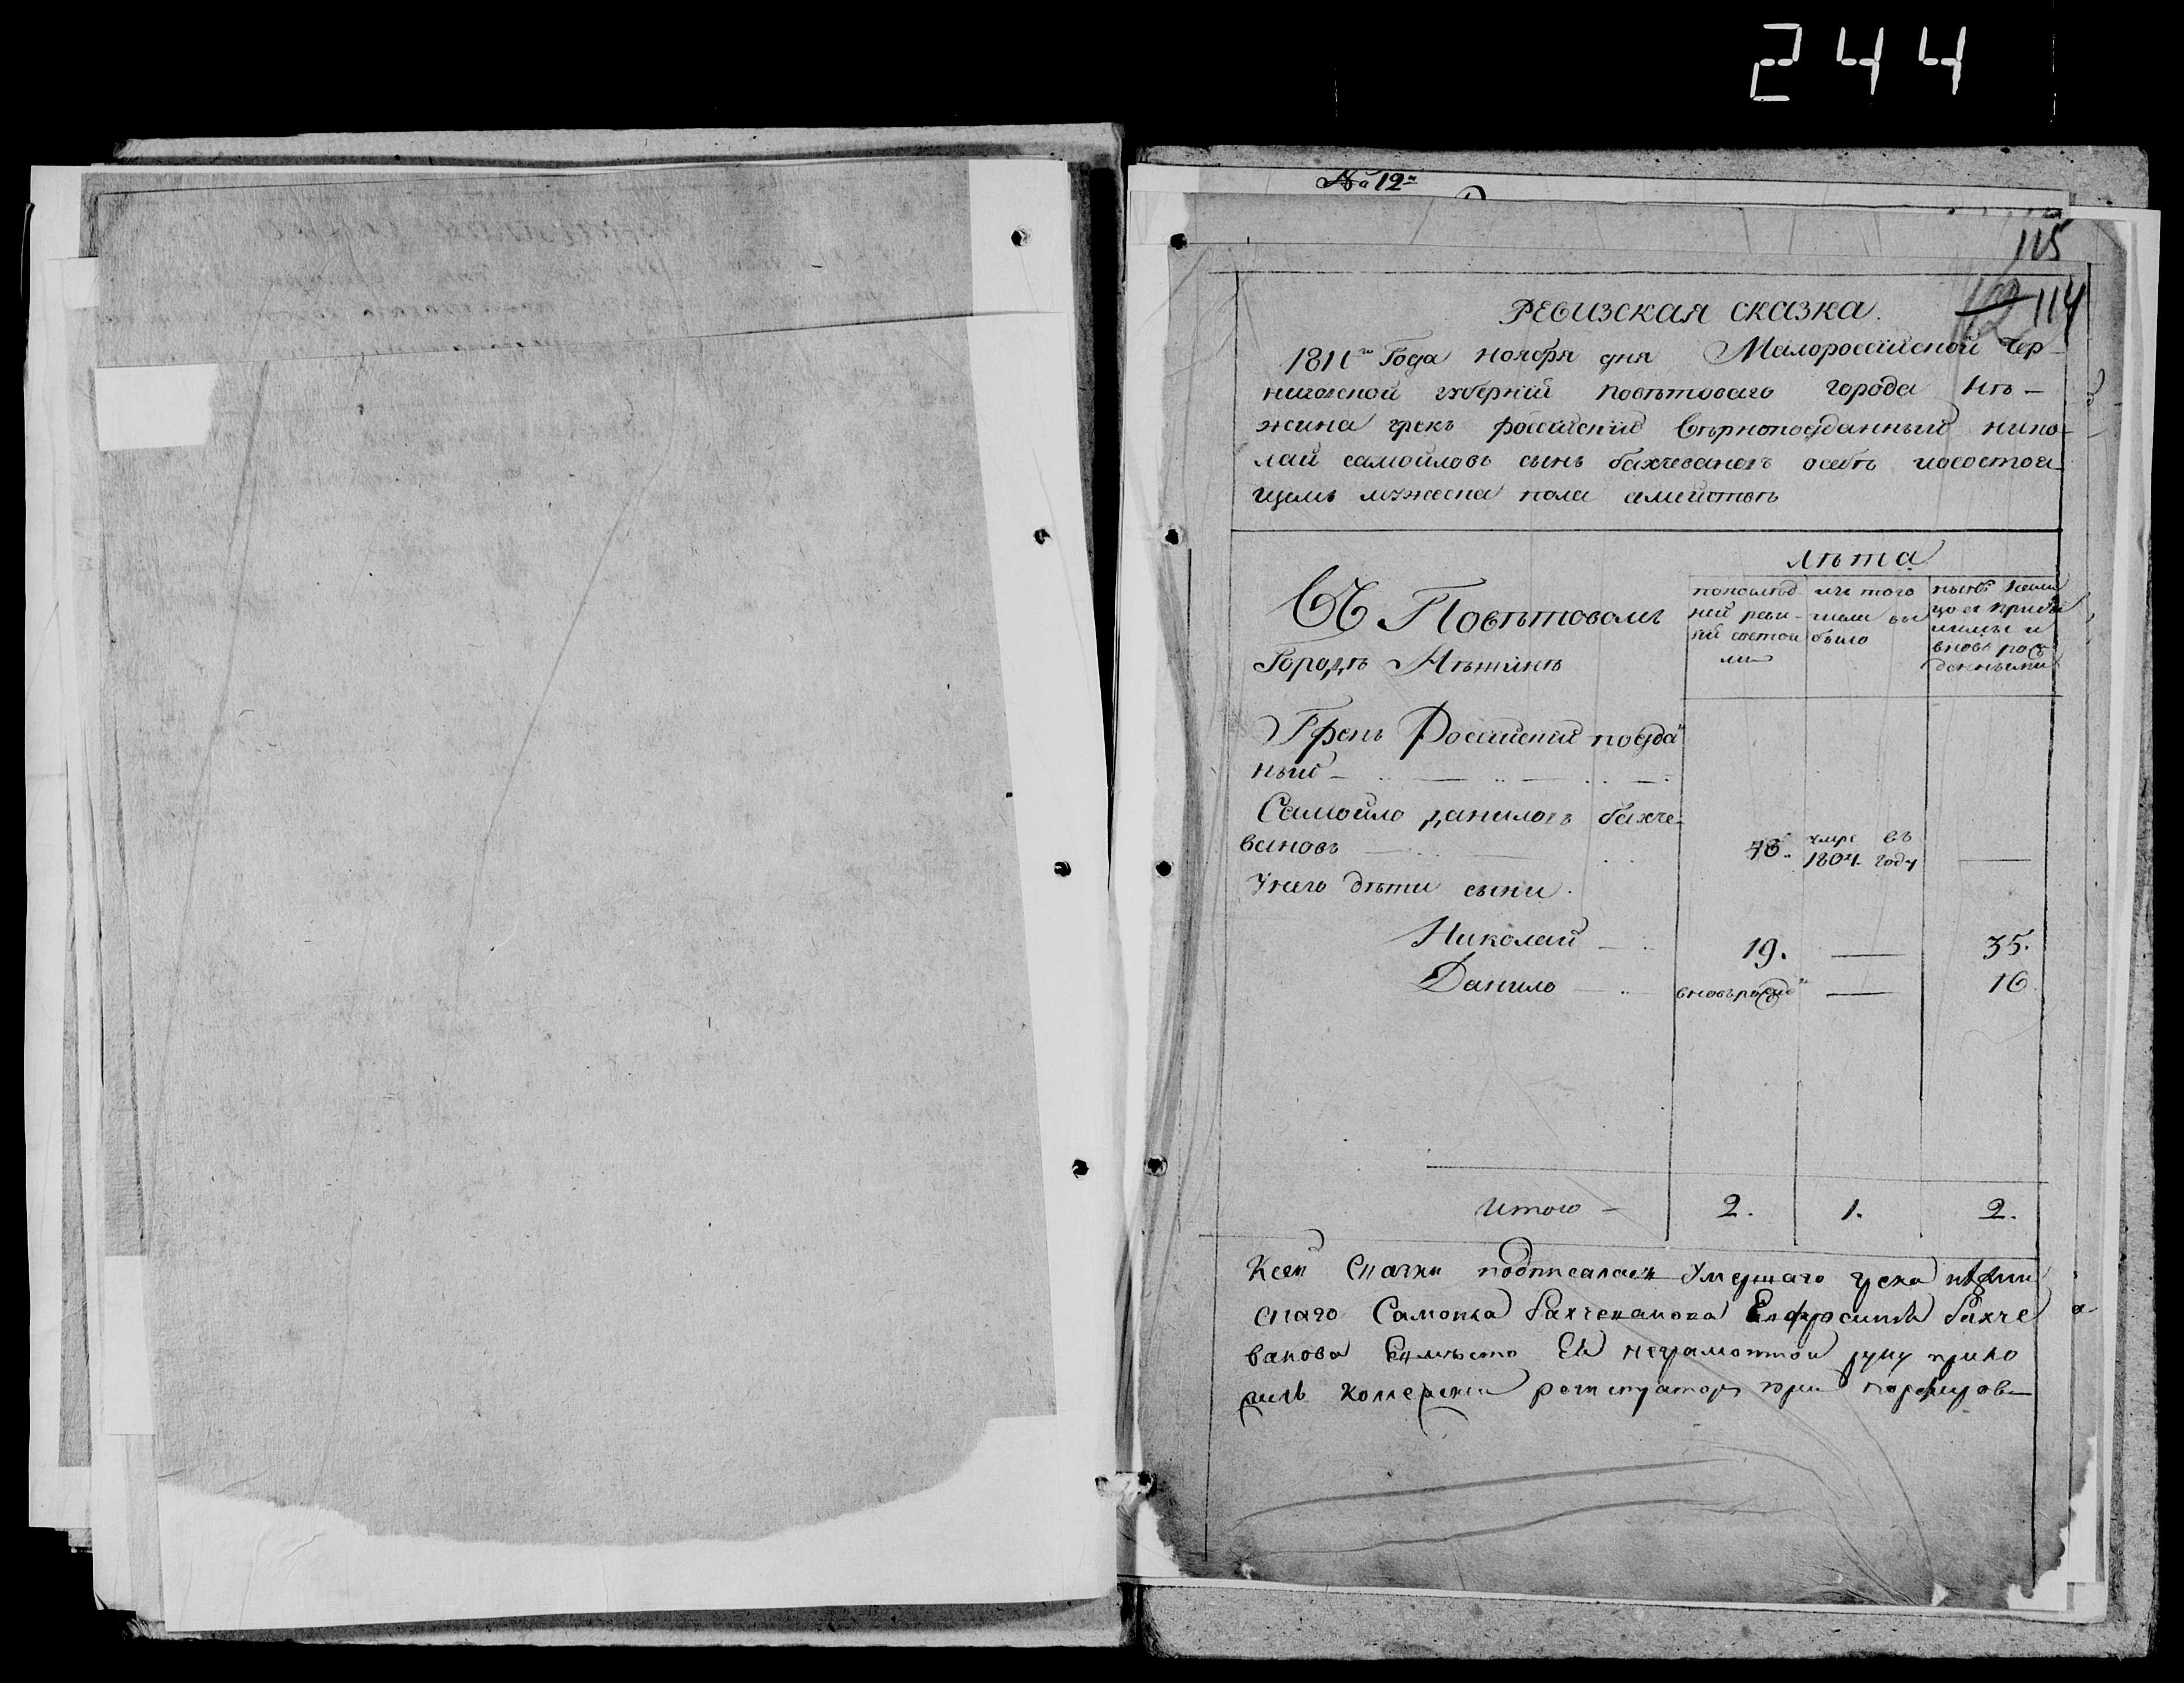 244
№ 12
115
114
РЕВИЗСКАЯ СКАЗКА.
1811го Года ноября дня Малороссийской Чер-
ниговской губернии поветоваго города Нѣ-
жина грекъ российский верноподданный нико-
лай самойловъ сынъ бахчевановъ осебѣ исостоя-
щемъ мужеска пола семействѣ
Лѣта
Въ Поветовомъ
Городѣ Нѣжинѣ
попослѣд-
ней реви-
зии состоя
ли
изъ того
числа вы
было
ныне налицо
вновь рож
денными
Грекъ Российский подда
ный
Самойло даниловъ бахче-
вановъ
48.
умре въ
1804. году
Унего дѣти сыны.
Николай 19. 35.
Данило вновьрожде 16
Итого 2. 1. 2.
Ксей скаски подписалась Умершаго грека нѣжин
скаго Самойла бахчеванова Евфросинія бахче
ванова Вмѣсто Ей неграмотной руку прило
жилъ колежски регистраторъ